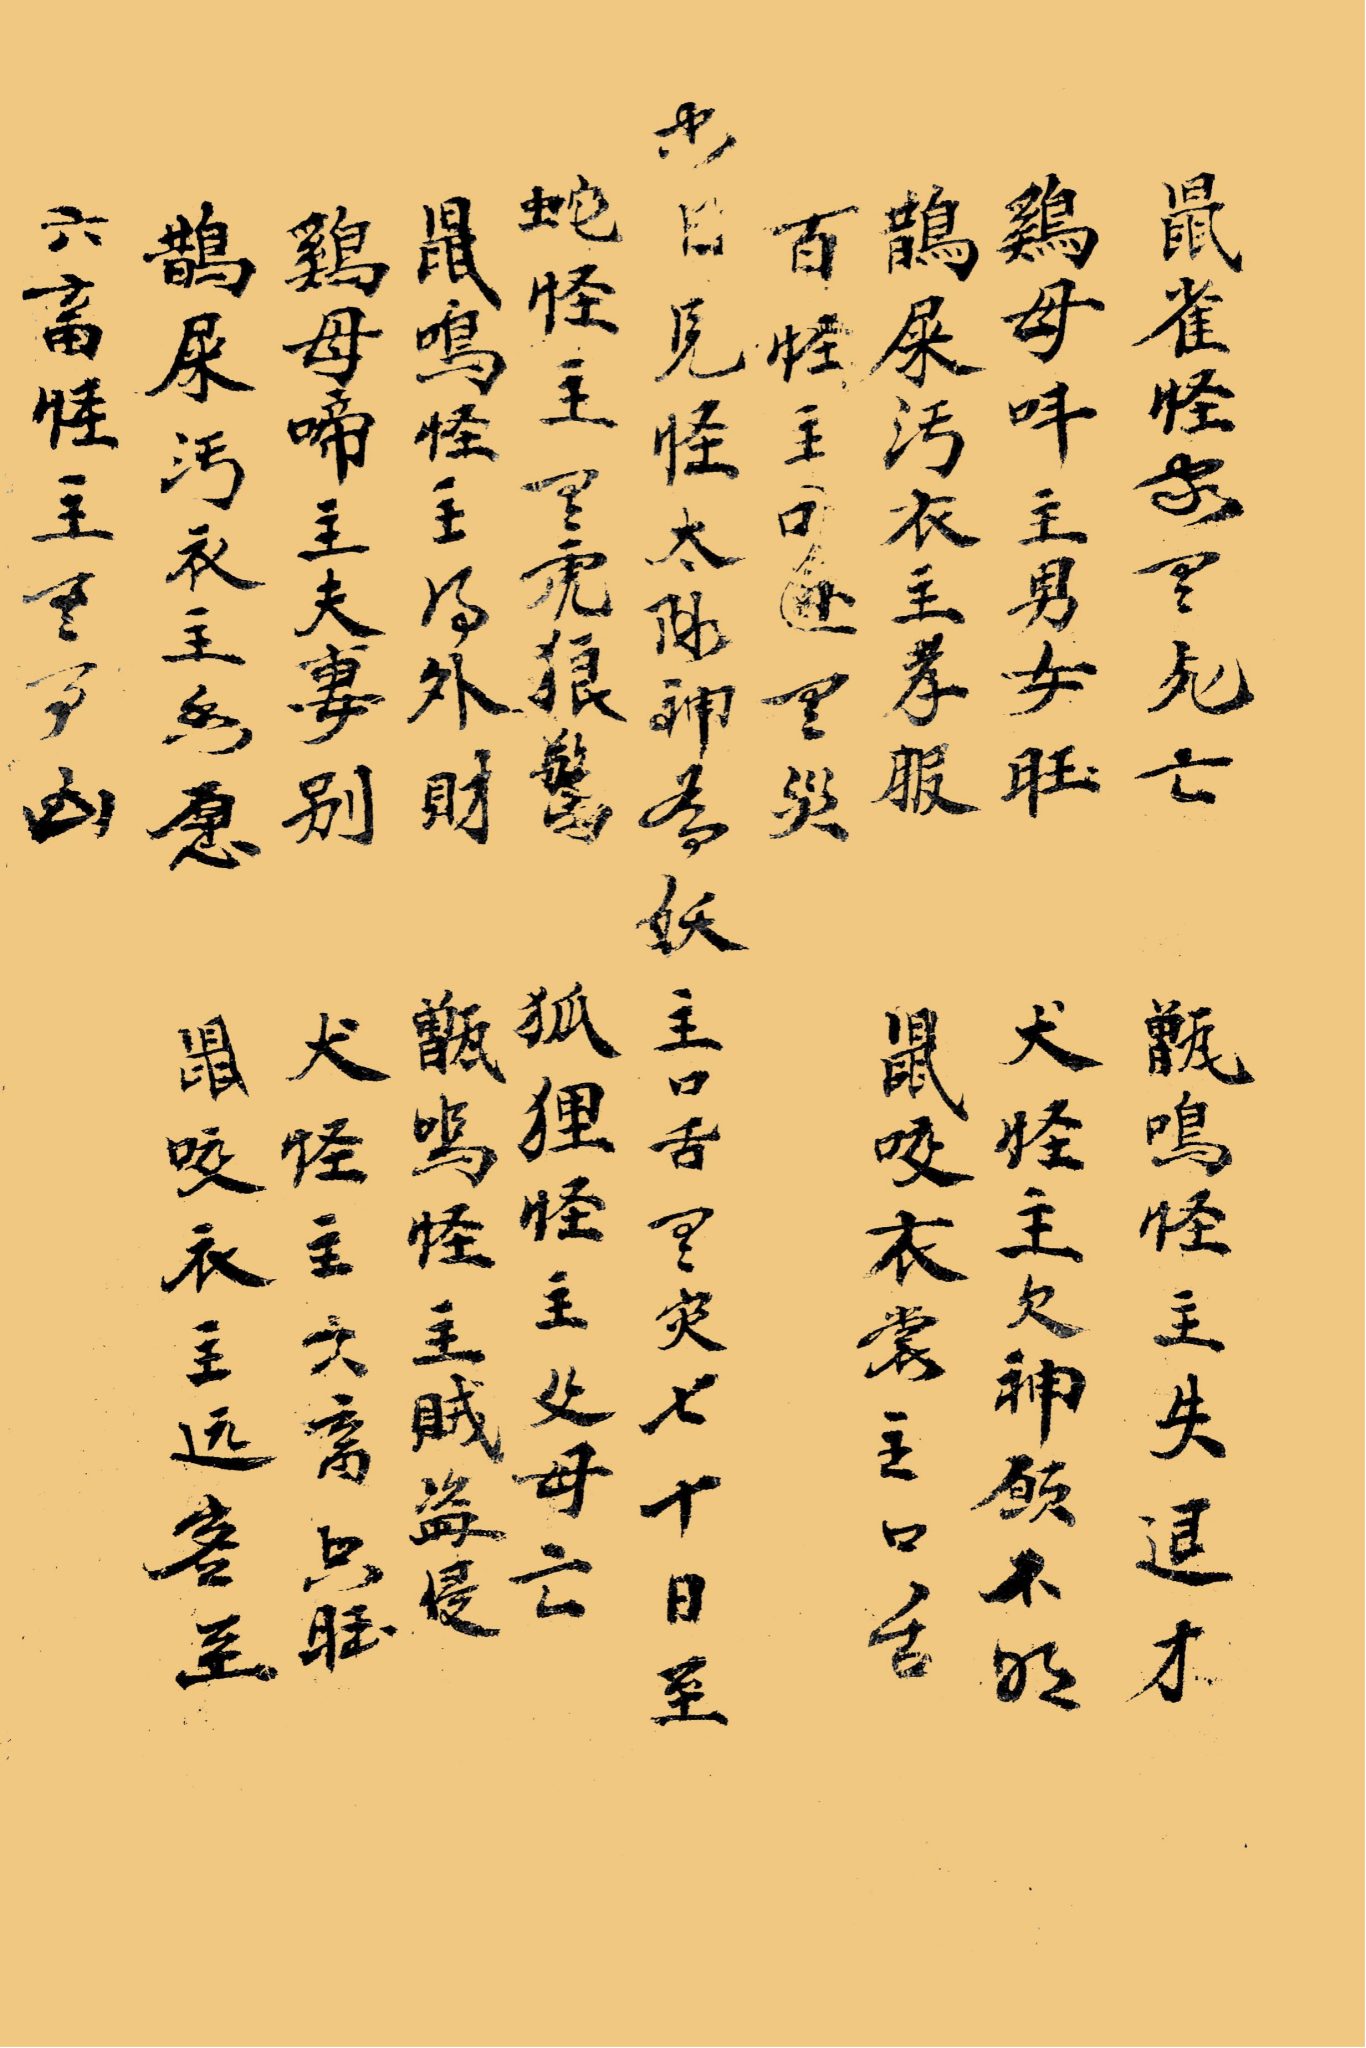 鼠雀怪家里死亡
甑鳴怪主失退才
鷄母叫主男女旺
犬怪主欠神願不明
鵲屎污衣主孝服
鼠咬衣裳主口舌
百怪主口里災
日見怪太阴神为妖主口舌里灾七十日至
蛇怪主里虎狼驚
狐狸怪主父母亡
鼠鳴怪主得外財
甑鳴怪主賊盗侵
鷄母啼主夫妻別
犬怪主六畜只旺
鵲屎污衣主愿
鼠咬衣主远客至
六畜怪主里凶